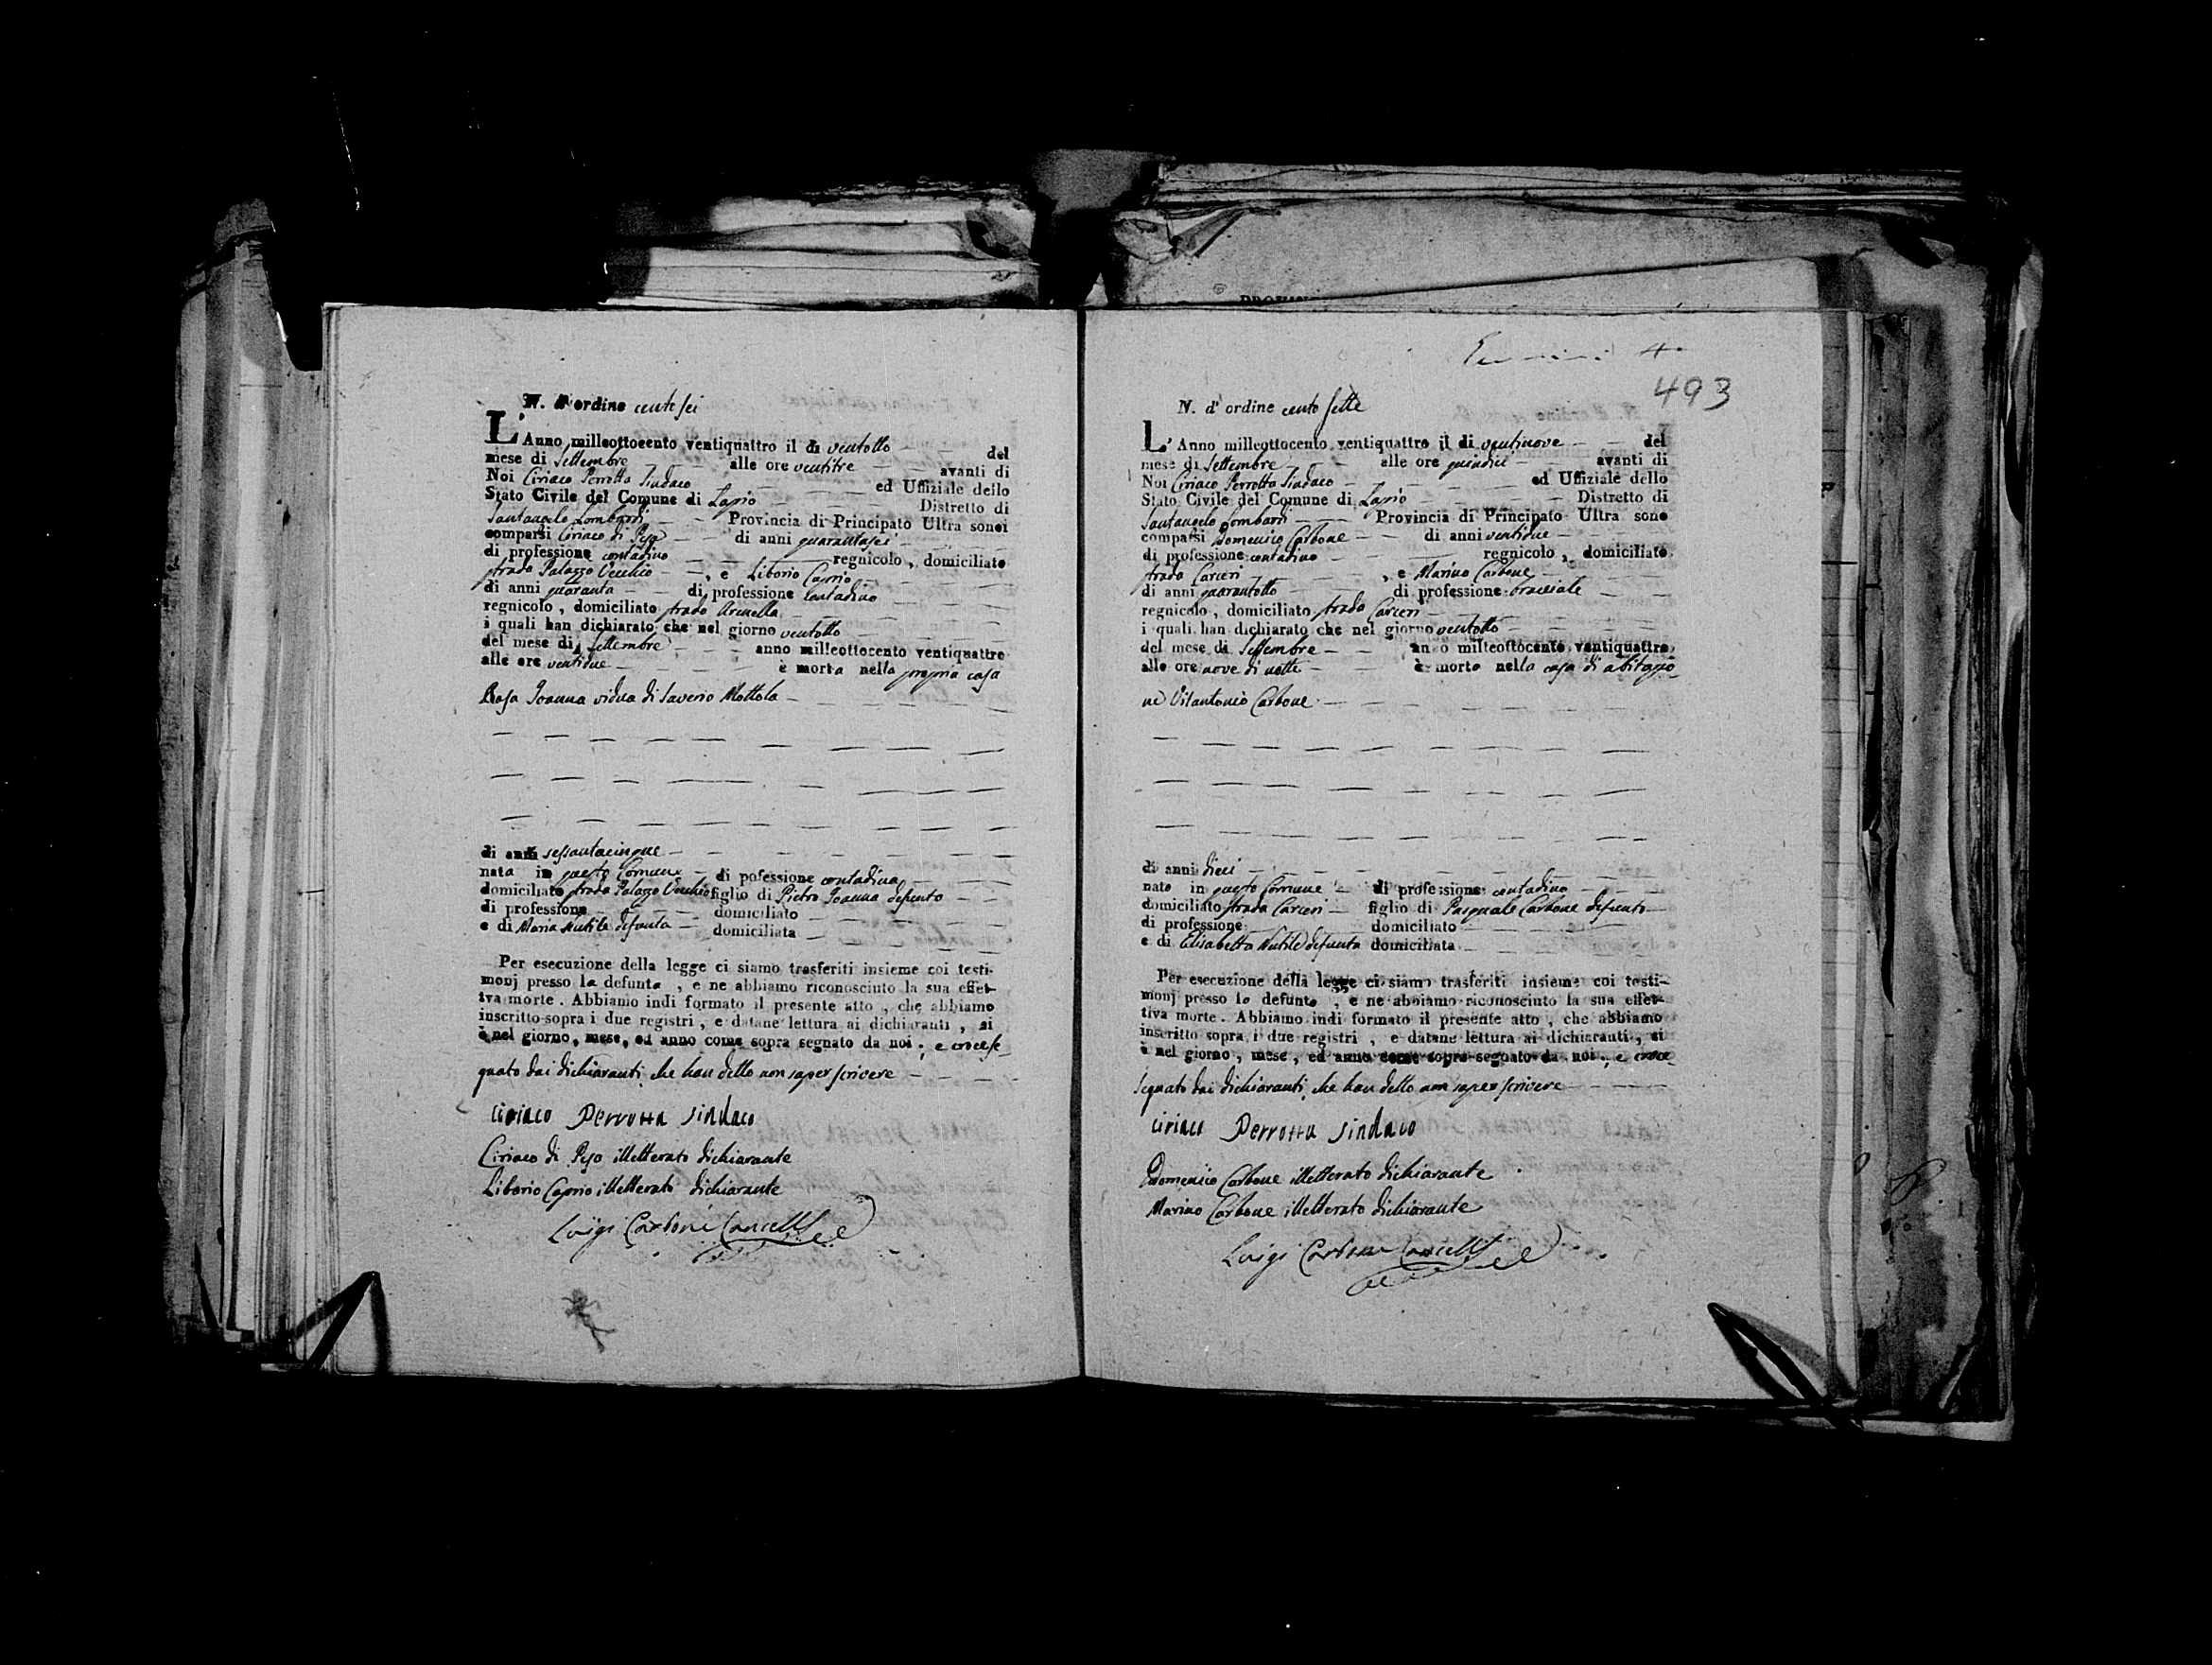 N. d'ordine cento sei
L'Anno milleottocento ventiquattro il di ventotto del
mese di Settembre alle ore ventitre avanti di
Noi Ciriaco Perrotta Sindaco ed Uffiziale dello
Stato Civile del Comune di Lapio Distretto di
Santangelo Lombardi Provincia di Principato Ultra sonoi
comparsi Ciriaco di Peso di anni quarantasei
di professione contadino regnicolo, domiciliato
strada Palazzo Vecchio, e Liborio Caprio
di anni quaranta di professione contadino
regnicolo, domiciliato strada Arinella
i quali han dichiarato che nel giorno ventotto
del mese di Settembre anno milleottocento ventiquattro
alle ore ventidue è morta nella propria casa
Rosa Joanna vidua di Saverio Mottola
di anni sessantacinque
nata in questo Comune di pofessione contadina
domiciliato strada Palazzo Vecchio figlio di Pietro Joanna defunto
di professione domiciliato
e di Maria Nutile defunta domiciliata
Per esecuzione della legge ci siamo trasferiti insieme coi testi-
monj presso la defunta, e ne abbiamo riconosciuto la sua effet-
tva morte. Abbiamo indi formato il presente atto, che abbiamo
inscritto sopra i due registri, e datane lettura ai dichiaranti, si
è nel giorno, mese, ed anno come sopra segnato da noi; e croce se_
gnato dai dichiaranti, che han detto non saper scrivere
Ciriaco Perrotta Sindaco
Ciriaco di Peso illetterato dichiarante
Liborio Caprio illetterato dichiarante
Luigi Carbone Cancell
493
N. d'ordine cento sette
L'Anno milleottocento ventiquattro il di ventinove del
mese di Settembre alle ore quindici avanti di
Noi Ciriaco Perrotta Sindaco ed Uffiziale dello
Stato Civile del Comune di Lapio Distretto di
Santangelo Lombardi Provincia di Principato Ultra sono
comparsi Domenico Carbone di anni ventidue
di professione contadino regnicolo, domiciliato
strada Carceri, e Marino Carbone
di anni quarantotto di professione bracciale
regnicolo, domiciliato strada Carceri
i quali han dichiarato che nel giorno ventotto
del mese di Settembre anno milleottocento ventiquattro
alle ore nove di notte è morto nella casa di abitazio_
ne Vitantonio Carbone
di anni dieci
nato in questo Comune di professione contadino
domiciliato strada Carceri figlio di Pasquale Carbone defunto
di professione domiciliato
e di Elisabetta Nutile defunta domiciliata
Per esecuzione della legge ci siamo trasferiti insieme coi testi-
monj presso lo defunto, e ne abbiamo riconosciuto la sua effet-
tiva morte. Abbiamo indi formato il presente atto, che abbiamo
inscritto sopra i due registri, e datane lettura ai dichiaranti, si
è nel giorno, mese, ed anno come sopra segnato da noi; e croce
segnato dai dichiaranti, che han detto non saper scrivere
Ciriaco Perrotta Sindaco
Domenico Carbone illetterato dichiarante
Marino Carbone illetterato dichiarante
Luigi Carbone Cancell